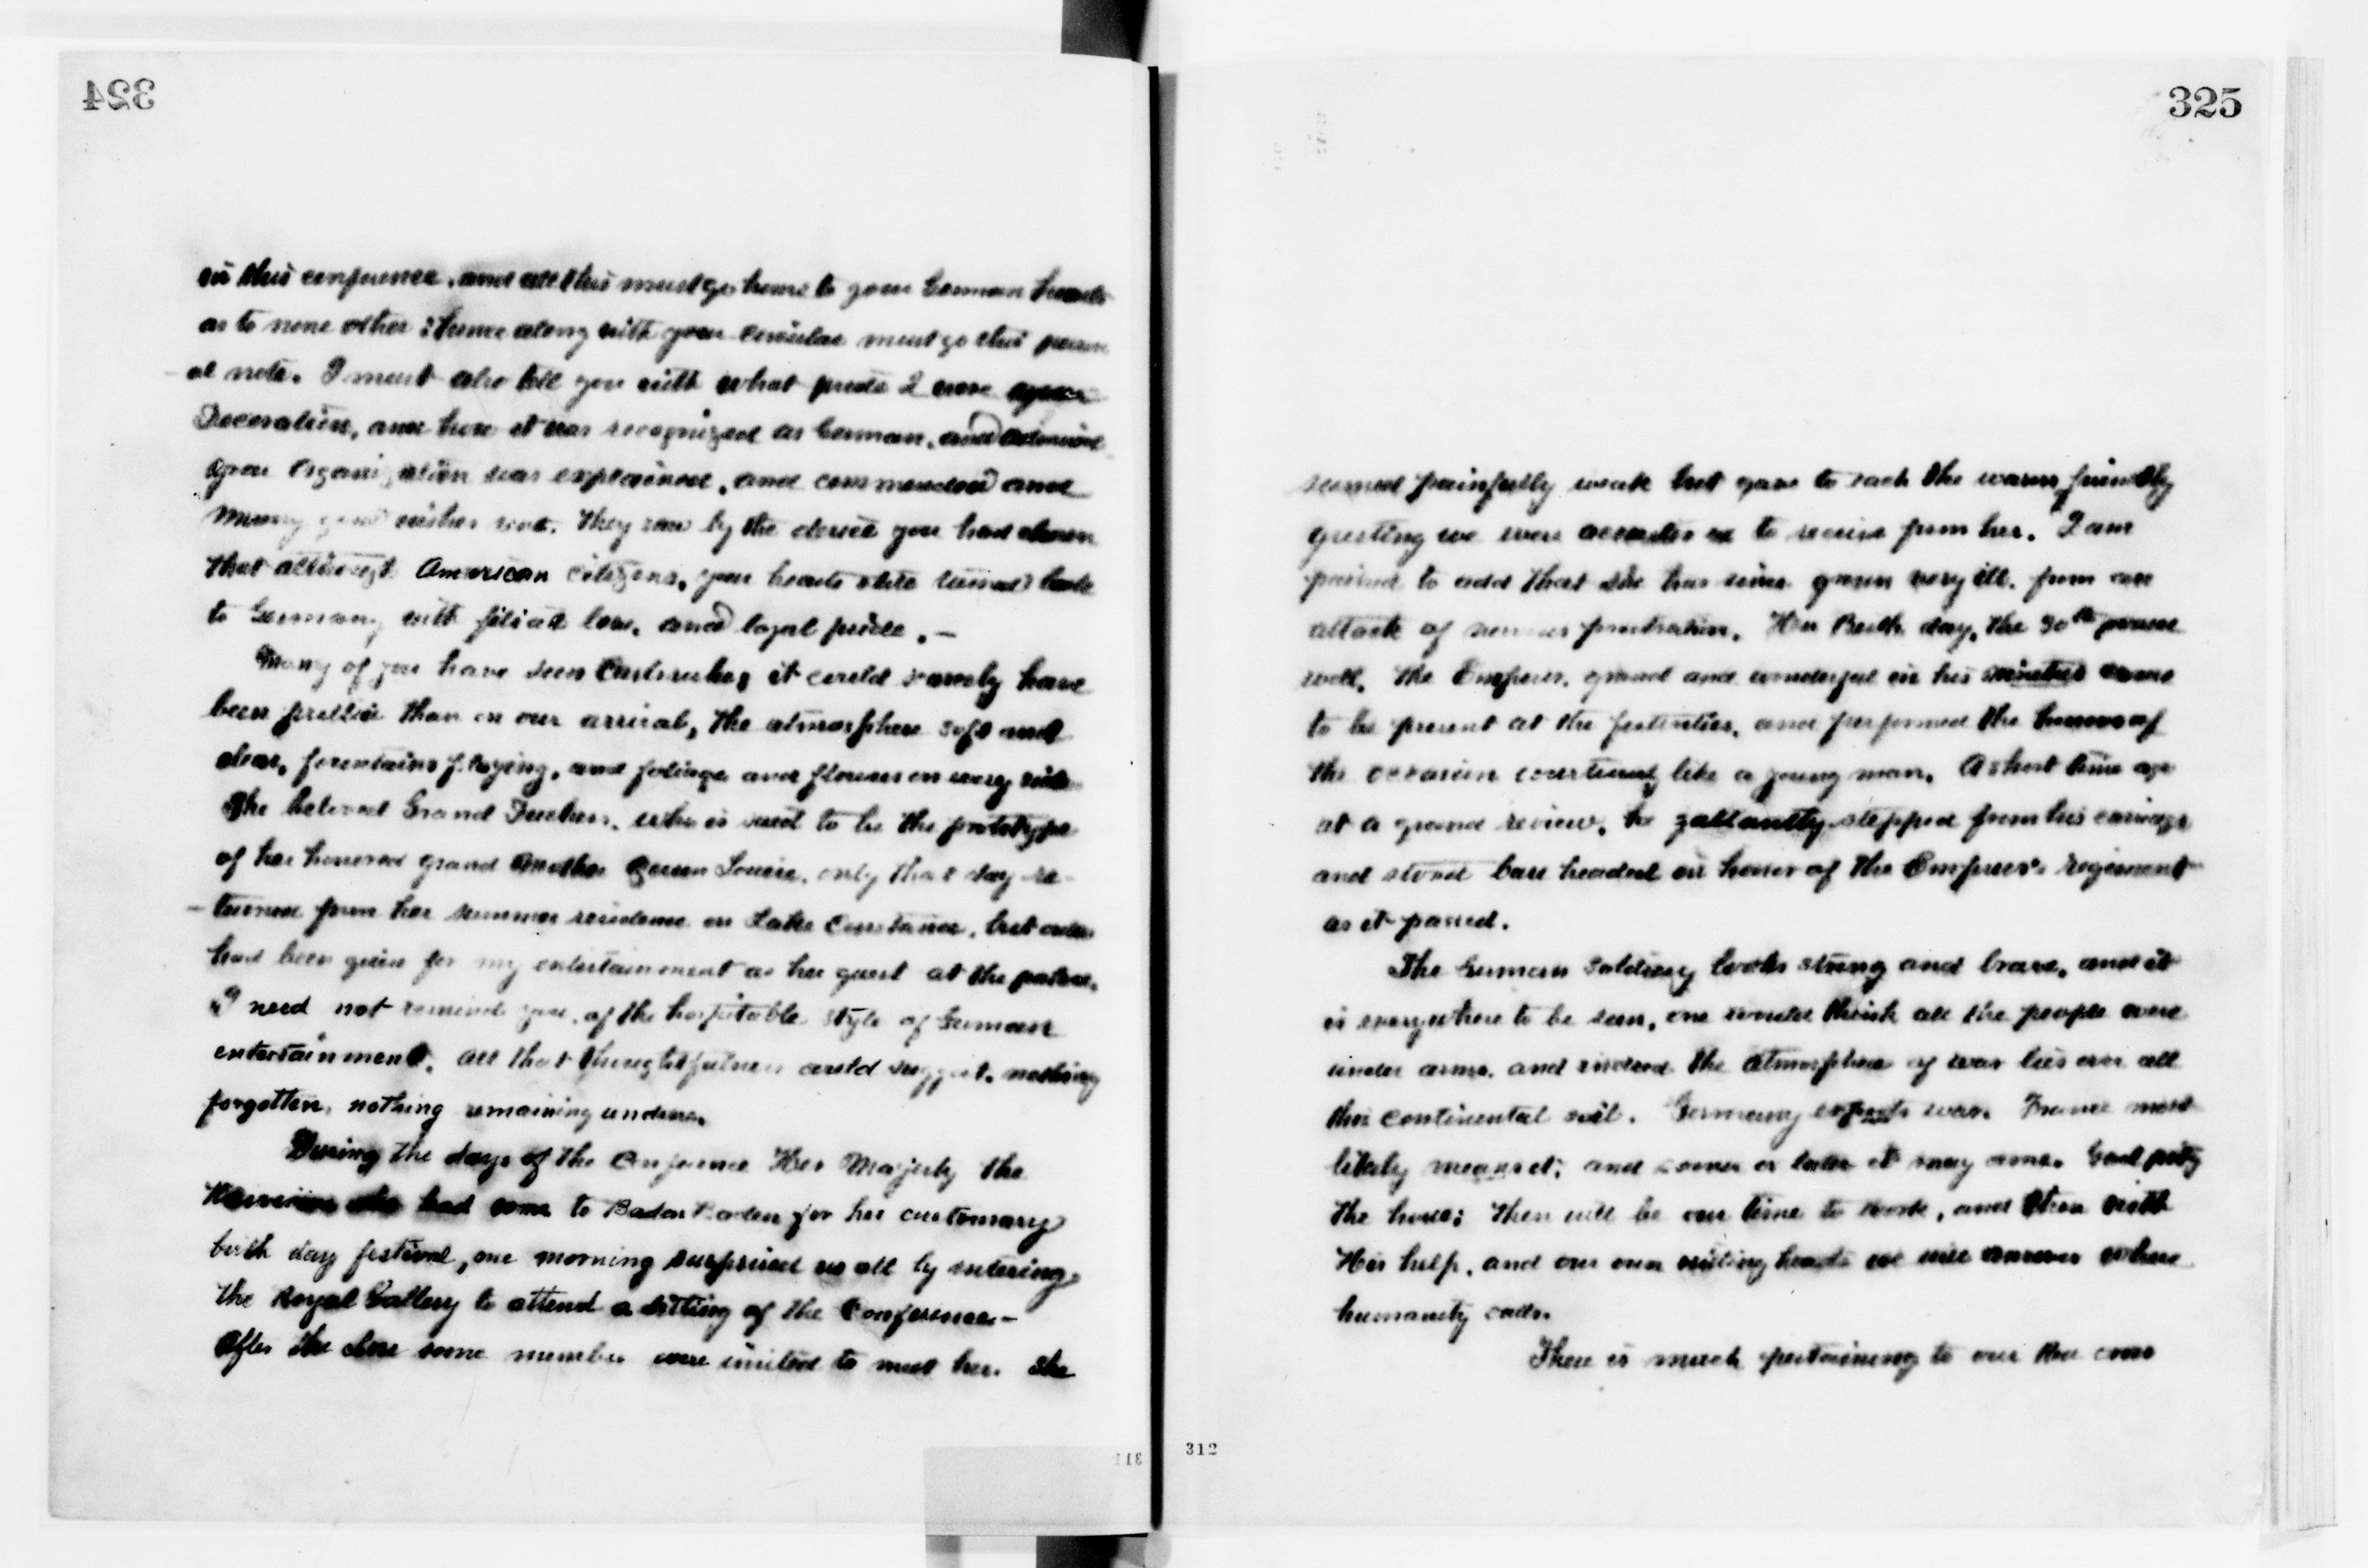 324
in this conference, and all this must go home to your German hearts
as to none other: hence along with your circular must go this person
-al note. I must also tell you with what pride I wore your
Decoration, and how it was recognized as German, and
your organization was explained, and commended and
many good wishes sent. They saw by the device you had chosen
that altho' American citizens, your hearts still turned back
to Germany with filial love, and loyal pride. —
Many of you have seen Carlsruhe, it could rarely have
been prettier than on our arrival, the atmosphere soft and
clear, fountains playing, and foliage and flowers on every side
The beloved Grand Duchess, who is said to be the prototype
of her honored grand mother Queen Louise, only that day re-
-turned from her summer residence on Lake Constance, but orders
had been given for my entertainment as her guest at the palace.
I need not remind you, of the hospitable style of German
entertainment. All that thoughtfulness could suggest, nothing
forgotten, nothing remaining undone.
During the days of the Conference Her Majesty the
Empress who had come to Baden Baden for her customary
birth day festival, one morning surprised us all by entering
the Royal Gallery to attend a sitting of the Conference. —
After the close some members were invited to meet her. She
311
325
seemed painfully weak but gave to each the warm friendly
greeting we were accustomed to receive from her. I am
pained to add that she has since grown very ill, from an
attack of nervous prostration. Her Birth day, the 30th passed
well. The Emperor, grand and wonderful in his nineties came
to be present at the festivities, and performed the honors of
the occasion courteously like a young man. A short time ago
at a grand review, he gallantly stepped from his carriage
and stood bare headed in honor of the Empress's regiment
as it passed.
The German soldiery looks strong and brave, and it
is everywhere to be seen, one would think all the people were
under arms, and indeed the atmosphere of war lies over all
this continental soil. Germany expects war. France most
likely means it; and sooner or later it may come. God pity
the hour; then will be our time to work, and then with
His help, and our own willing hearts we will answer where
humanity calls.
There is much pertaining to our Red cross
312